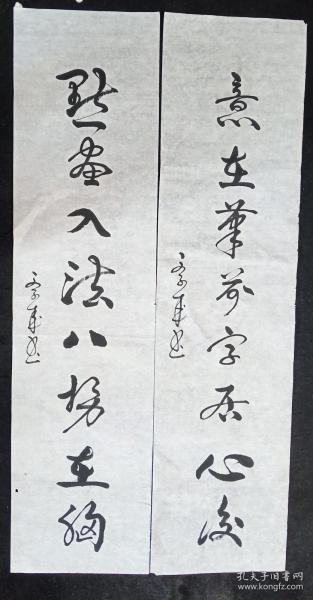 意在筆前字居心後
點畫入法八勢在胸
孔夫子旧书网
book.kongfz.com